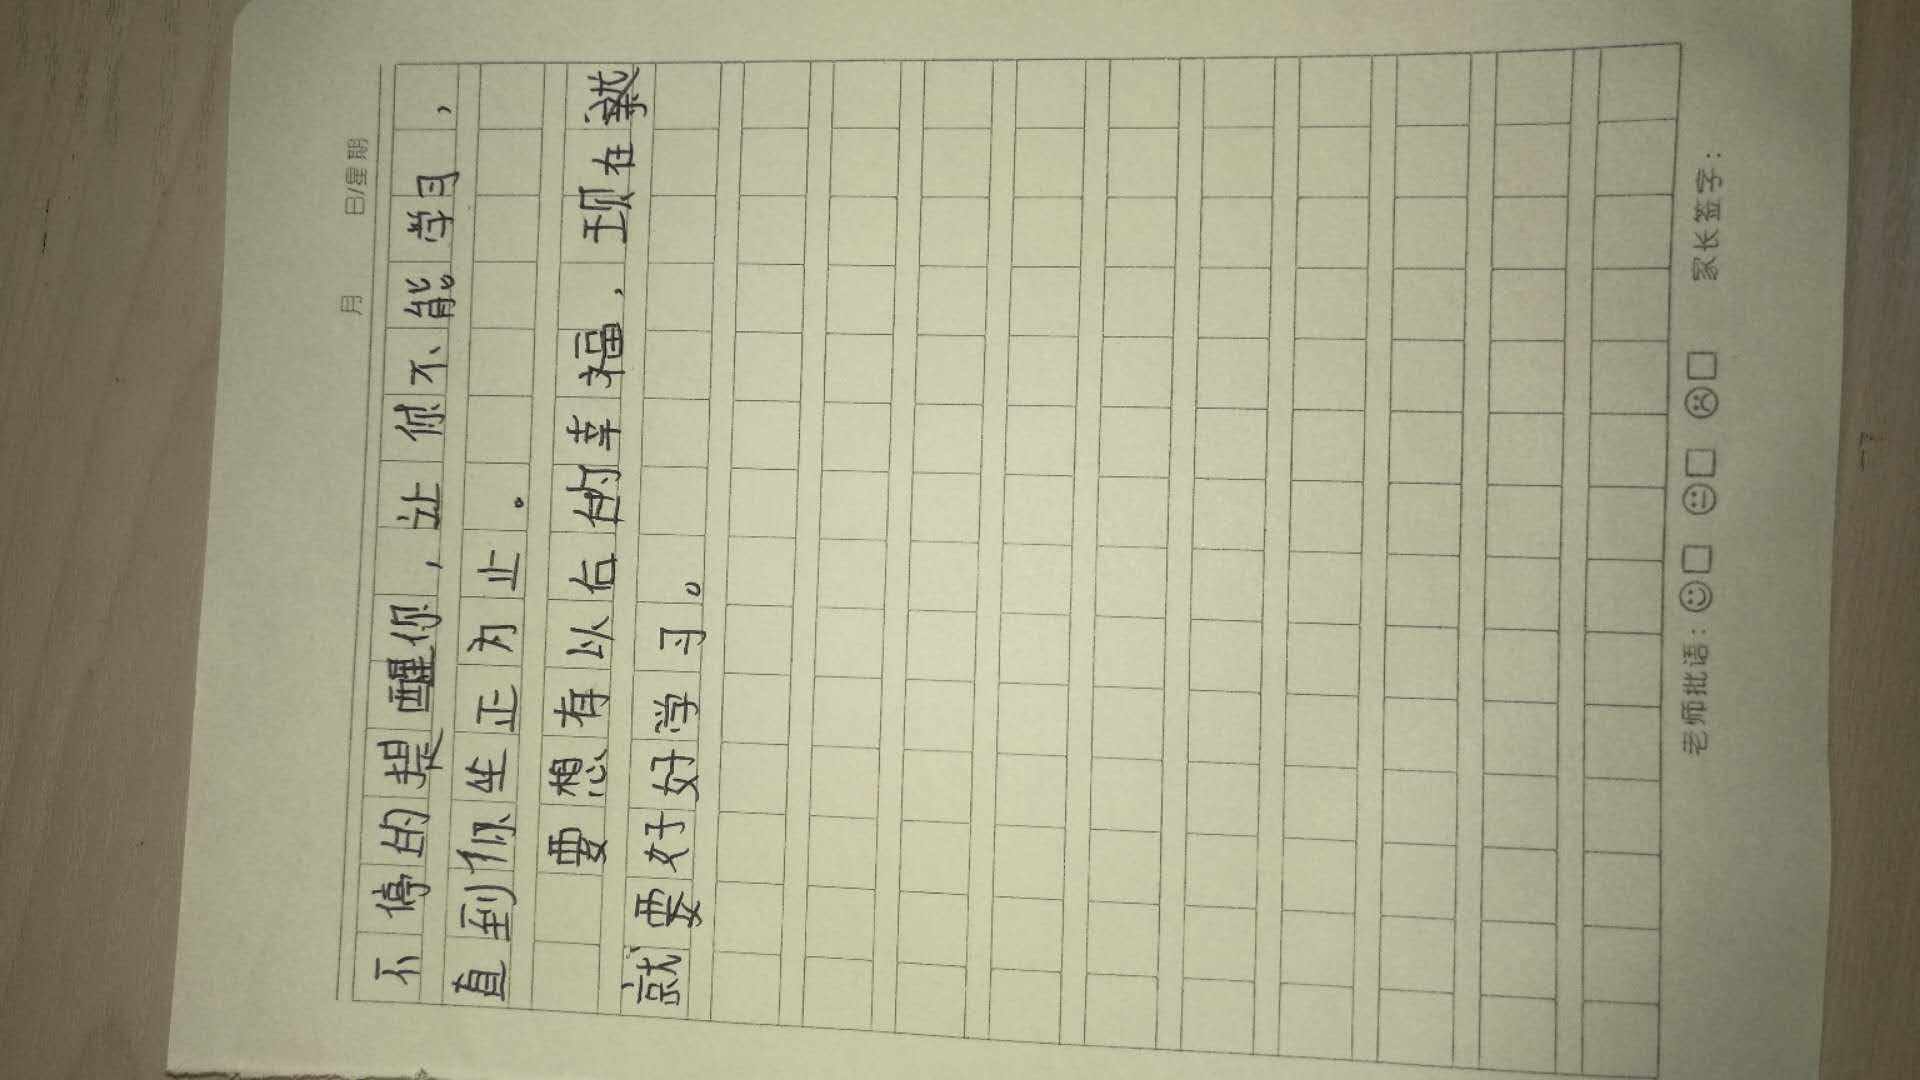 月 日/星期
不停的提醒你，让你不能学习，
直到你坐正为止。
要想有以后的幸福，现在
就要好好学习。
老师批语：☺□ 😐□ ☹□ 家长签字：